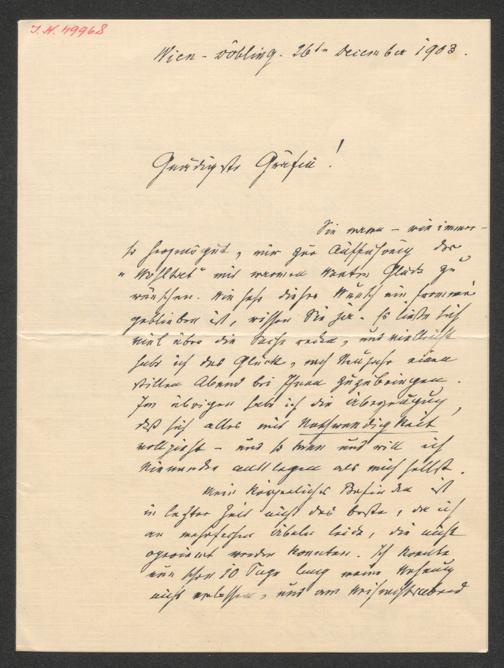 J.N. 49968
Wien-Döbling. 26ten December 1903.
Gnädigste Gräfin!
Sie waren – wie immer –
so herzensgut, mir zur Aufführung der
"Wohltat" mit warmen Worten Glück zu
wünschen. Wie sehr dieser Wunsch ein frommer
geblieben ist, wissen Sie ja. Es ließe sich
viel über die Sache reden, und vielleicht
habe ich das Glück, nach Neujahr einen
stillen Abend bei Ihnen zuzubringen.
Im übrigen habe ich die Überzeugung,
daß sich alles mit Nothwendigkeit
vollzieht – und so kann und will ich
Niemanden anklagen als mich selbst.
Mein körperliches Befinden ist
in letzter Zeit nicht das beste, da ich
an mehrfachen Übeln leide, die nicht
operiert werden konnten. Ich konnte
nun schon 10 Tage lang meine Wohnung
nicht verlassen, und am Weihnachtsabend